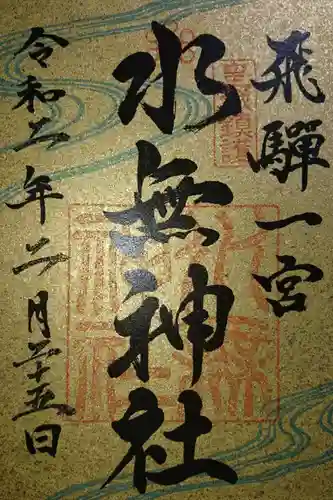 飛騨一宮
水無神社
令和二年二月二十五日